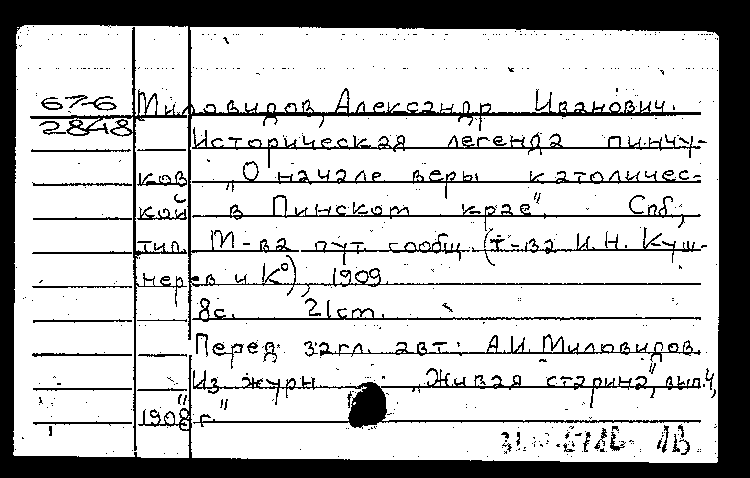 67-6
2848
Миловидов, Александр Иванович.
Историческая легенда пинчу-
ков „О начале веры католичес-
кой в Пинском крае". Спб.,
тип. М-ва пут. сообщ. (т-ва И.Н. Куш-
нерев и К°), 1909.
8с. 21см.
Перед загл. авт.: А.И. Миловидов.
Из журн „Живая старина", вып.4,
1908 г."